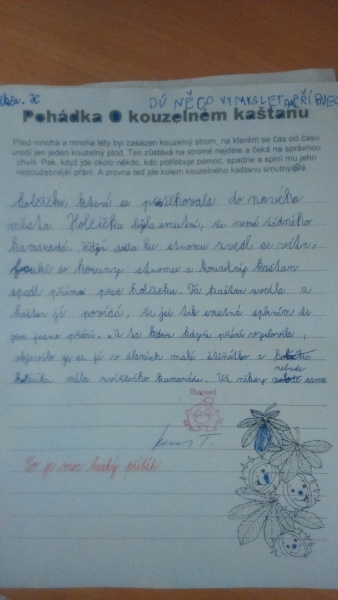 DÚ NĚCO VYMYSLET
Pohádka o kouzelném kaštanu
Před mnoha a mnoha lety byl zasazen kouzelný strom, na kterém se čas od času
urodí jen jeden kouzelný plod. Ten zůstává na stromě nejdéle a čeká na správnou
chvíli. Pak, když jde okolo někdo, kdo potřebuje pomoc, spadne a splní mu jeho
nejpoužebnější přání. A zrovna teď jde kolem kouzelného kaštanu smutný
holčička, která se přistěhovala do nového
města. Holčička byla smutná, že nemá žádného
kamaráda. Když šla ke stromu zvedl se vítr,
foukl do koruny stromu a kouzelný kaštan
spadl přímo před holčičku. Ta kaštan zvedla a
kaštan jí povídá, že jsi tak smutná splním ti
jedno přání. a ta když přání vyslovila,
objevilo se jí v dlaních malé štěňátko a
holčička měla zvířecího kamaráda. Už nikdy nebude sama
To je moc hezký příběh